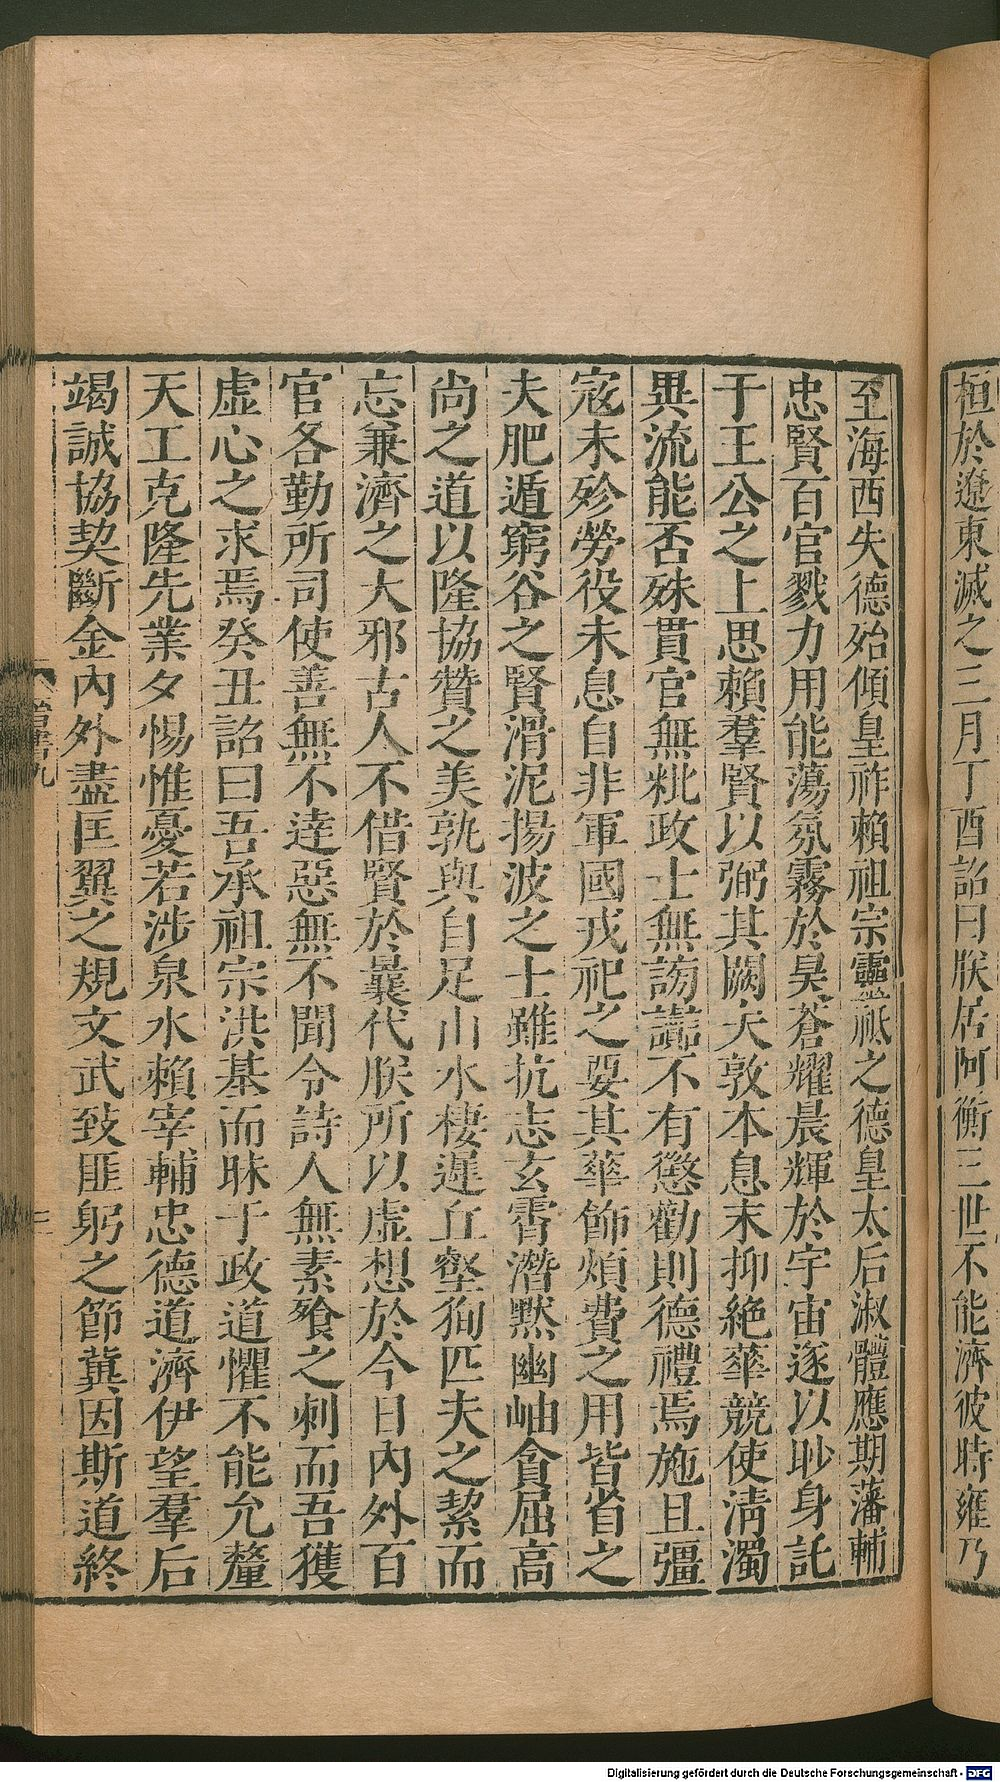 桓於遼東滅之三月丁酉詔曰朕居阿衡三世不能濟彼時雍乃
至海西失德殆傾皇祚賴祖宗靈祗之德皇太后淑體應期藩輔
忠賢百官戮力用能蕩氛霧於昊蒼耀晨輝於宇宙遂以眇身託
于王公之上思賴羣賢以弼其闕夫敦本息末抑絶華競使清濁
異流能否殊貫官無秕政士無謗讟不有懲勸則德禮焉施且彊
寇未殄勞役未息自非軍國戎祀之要其華飾煩費之用皆省之
夫肥遁窮谷之賢滑泥揚波之士雖抗志玄霄潛默幽岫貪屈高
尚之道以隆協贊之美孰與自足山水棲遲丘壑徇匹夫之絜而
忘兼濟之大邪古人不借賢於曩代朕所以虛想於今日內外百
官各勤所司使善無不達惡無不聞令詩人無素飱之刺而吾獲
虛心之求焉癸丑詔曰吾承祖宗洪基而昧于政道懼不能允釐
天工克隆先業夕惕惟憂若涉泉水賴宰輔忠德道濟伊望羣后
竭誠協契斷金內外盡匡翼之規文武致匪躬之節冀因斯道終
晉書九
三
Digitalisierung gefördert durch die Deutsche Forschungsgemeinschaft - DFG